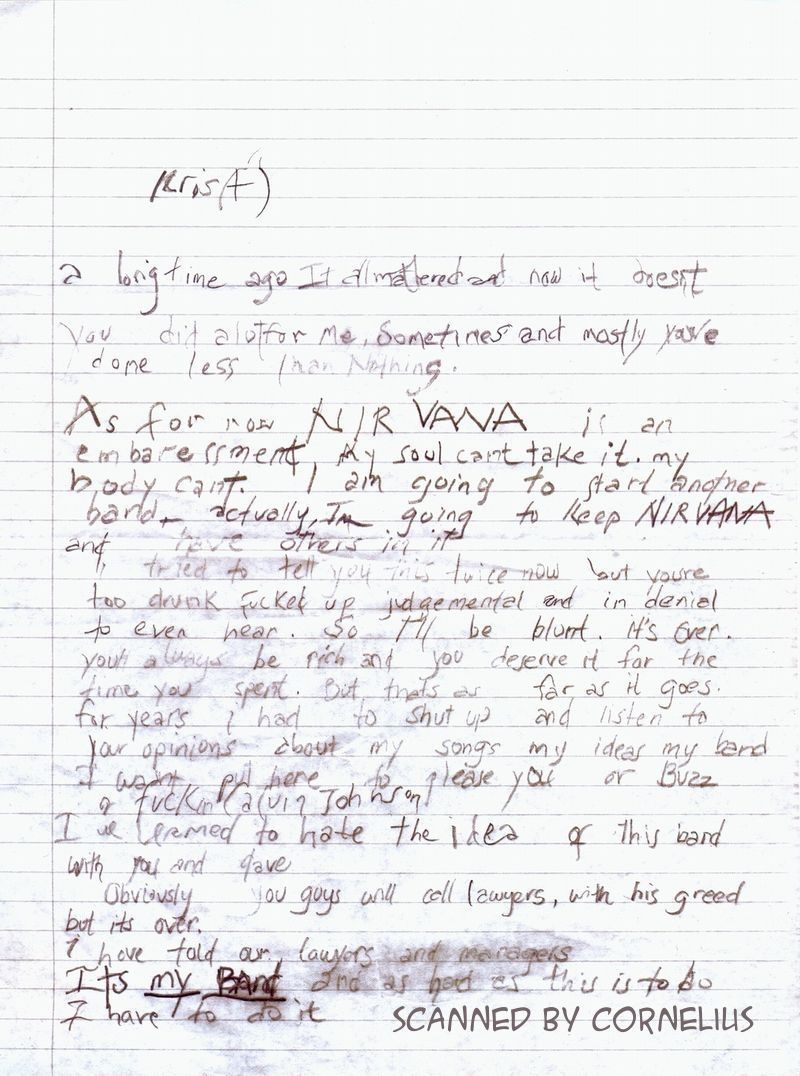 Kris(t)
a long time ago It all mattered and now it doesnt
You did alot for me, Sometimes and mostly you've
done less than Nothing.
As for now NIRVANA is an
embaressment, My soul cant take it. my
body cant. I am going to start another
band, actually, Im going to keep NIRVANA
and have others in it
I tried to tell you this twice now but youre
too drunk fucked up judgemental and in denial
to even hear. So I'll be blunt. it's over.
youll always be rich and you deserve it for the
time you spent. But, thats as far as it goes.
for years i had to shut up and listen to
your opinions about my songs my ideas my band
I wasnt put here to please you or Buzz
or fuckin Calvin Johnson
I've learned to hate the idea of this band
with you and dave
Obviously you guys will call lawyers, with his greed
but its over.
i have told our lawyers and managers
Its my BAND and as hard as this is to do
I have to do it
SCANNED BY CORNELIUS